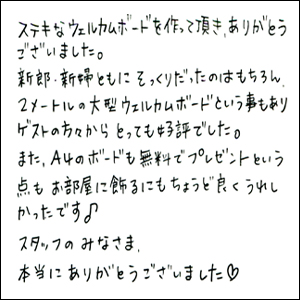 ステキなウェルカムボードを作って頂き、ありがとう
ございました。
新郎・新婦ともに そっくりだったのはもちろん、
2メートルの大型ウェルカムボードという事もあり
ゲストの方々から とっても好評でした。
また、A4のボードも無料でプレゼントという
点も お部屋に飾るにもちょうど良くうれし
かったです♪
スタッフの みなさま、
本当に ありがとうございました♡